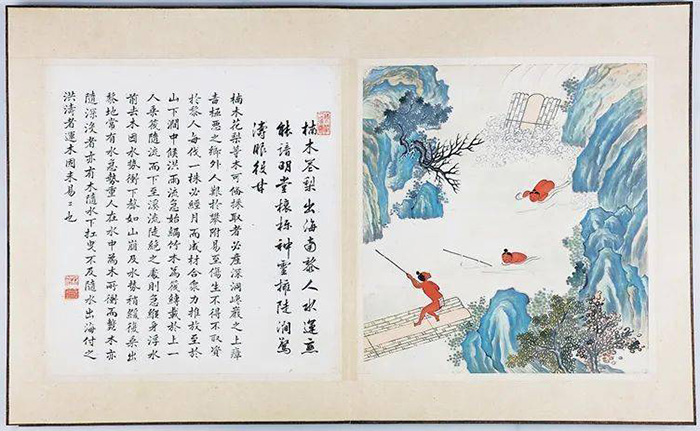 楠木花梨出海南黎人水運亦
能諳明堂榱桷神靈擁陡澗驚
濤眼
楠木花梨等木可備採取者必產深峒峻巖之上瘴
毒極惡之鄉外人艱於攀附易至傷生不得不取資
於黎人每伐一株必經月而成材合衆力推放至於
山下澗中候洪雨流急始編竹木為筏縛載於上一
人乘筏隨流而下至溪流陡絕之處則急縱身浮水
前去木因水勢衝下聲如山崩及水勢稍緩復乘出
黎地常有水急勢重人在水中為木所衝而斃木亦
隨深沒者亦有木隨水下扛曳不及隨水出海付之
洪濤者運木固未易〻也